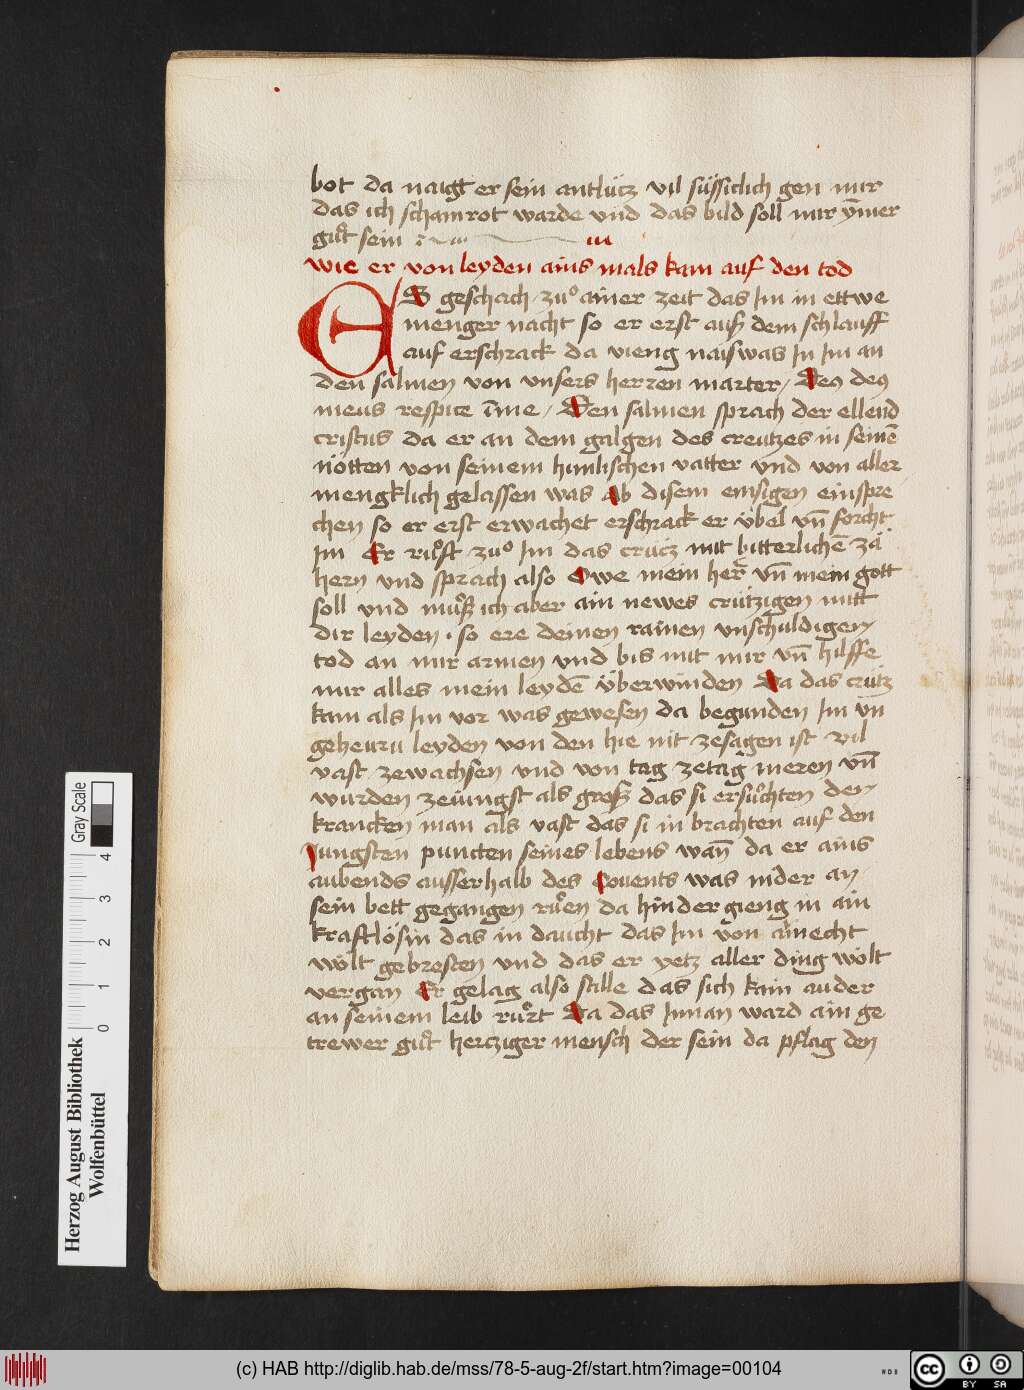 bot da naigt er sein antlücz vil süssiclich gen mir
das ich schamrot warde vnd das bild soll mir ÿm̄er
guͦt sein
wie er von leyden ains mals kam auf den tod
ES geschach zuͦ ainer zeit das Im in ettwe
menger nacht so er erst auß dem schlauff
auf erschrack da vieng naiswas In Im an
den salmen von vnsers herren marter / Deꝰ deꝰ
meus respice īme / Den salmen sprach der ellend
cristus da er an dem galgen des creutzes in seinē
nötten von seinem himlischen vatter vnd von aller
mengklich gelassen was Ab disem emsigen einspre
chen so er erst erwachet erschrack er übel vn̄ forcht
Im Er ruͦft zuͦ Im das crücz mit bitterlichē zä
hern vnd sprach also Owe mein her̄ vn̄ mein gott
soll vnd muͦß ich aber ain newes crützigen mitt
dir leyden . so ere deinen rainen vnschuldigen
tod an mir armen vnd bis mit mir vn̄ hilffe
mir alles mein leydē überwinden Da das crütz
kam als Im vor was gewesen da begunden Im vn
geheuru leyden von den hie nit zesagen ist vil
vast zewachsen vnd von tag zetag meren vn̄
wurden zeiungst als groß das si ersuͦchten den
krancken man als vast das si in brachten auf den
Iungsten puncten seines lebens wan̄ da er ains
aubends ausserhalb des Couents was nider an
sein bett gegangen ruͦen da hinder gieng in ain
kraftlösin das in daucht das Im von amecht
wölt gebresten vnd das er yetz aller ding wölt
vergan Er gelag also stille das sich kain auder
an seinem leib ruͦrt Da das Innan ward ain ge
trewer guͦt hercziger mensch der sein da pflag den
Herzog August Bibliothek
Wolfenbüttel
Gray Scale
0 1 2 3 4
(c) HAB http://diglib.hab.de/mss/78-5-aug-2f/start.htm?image=00104
cc BY SA